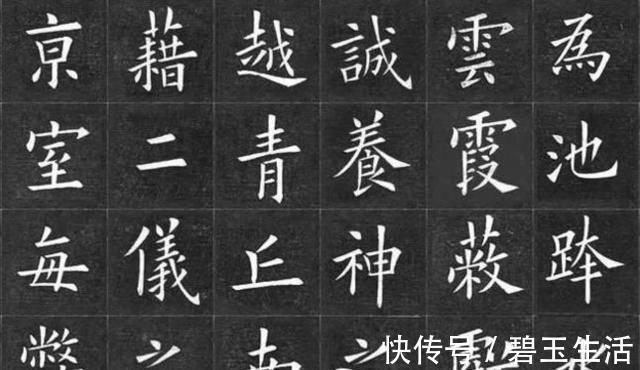 為池跨
雲霞蔽
誠養神之
越青丘南
藉二儀之
京室每弊
快传号/碧玉生活